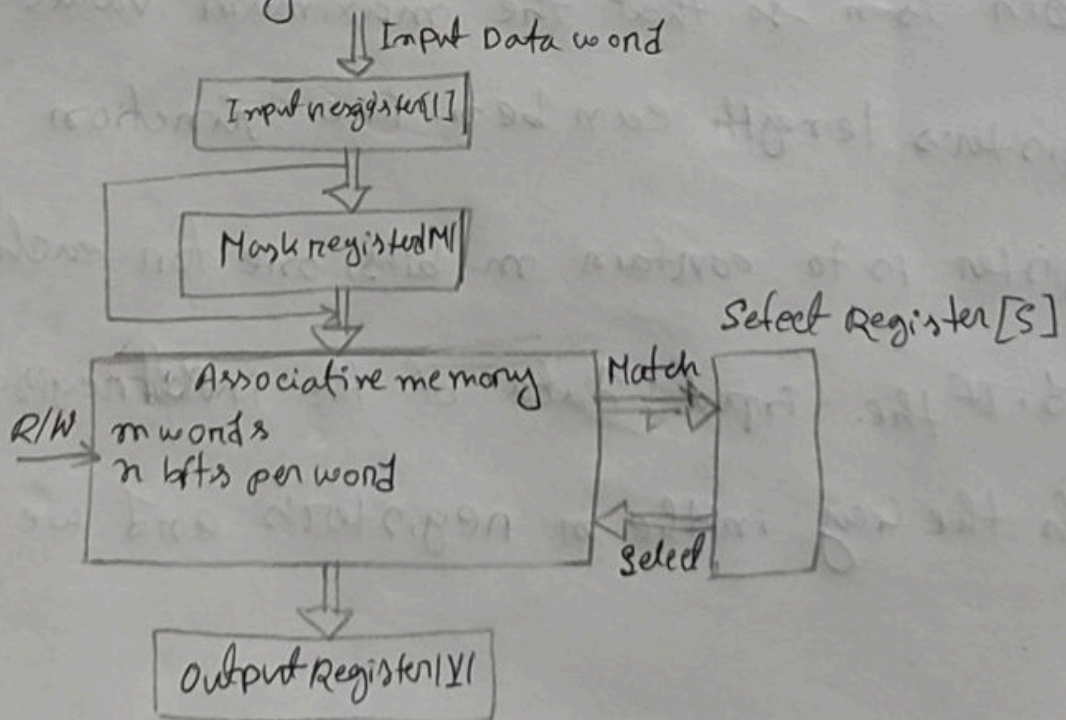 Input Data word
Input register[I]
Mask register[M]
Select Register[S]
Associative memory
Match
R/W
m words
n bits per word
Select
Output Register[Y]